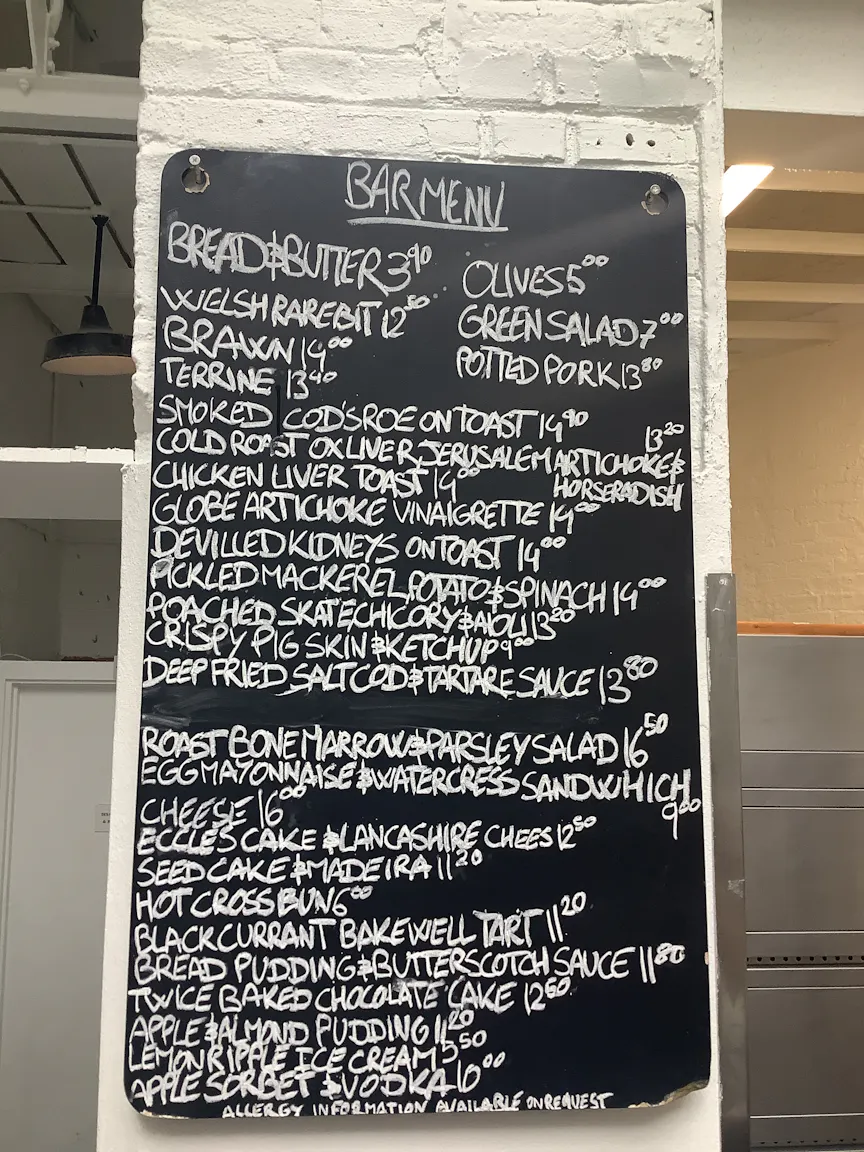 BAR MENU
BREAD & BUTTER 3.90
OLIVES 5.00
WELSH RAREBIT 12.50
GREEN SALAD 7.00
BRAWN 14.00
POTTED PORK 13.80
TERRINE 13.40
SMOKED COD'S ROE ON TOAST 14.90
COLD ROAST OX LIVER, JERUSALEM ARTICHOKE & 13.20
HORSERADISH
CHICKEN LIVER TOAST 14.00
GLOBE ARTICHOKE VINAIGRETTE 14.00
DEVILLED KIDNEYS ON TOAST 14.00
PICKLED MACKEREL, POTATO & SPINACH 14.00
POACHED SKATE CHICORY & AIOLI 13.20
CRISPY PIG SKIN & KETCHUP 9.00
DEEP FRIED SALT COD & TARTARE SAUCE 13.80
ROAST BONE MARROW & PARSLEY SALAD 16.50
EGG MAYONNAISE & WATERCRESS SANDWHICH
9.00
CHEESE 16.00
ECCLES CAKE & LANCASHIRE CHEES 12.50
SEED CAKE & MADEIRA 11.20
HOT CROSS BUN 6.00
BLACKCURRANT BAKEWELL TART 11.20
BREAD PUDDING & BUTTERSCOTCH SAUCE 11.80
TWICE BAKED CHOCOLATE CAKE 12.60
APPLE & ALMOND PUDDING 11.20
LEMON RIPPLE ICE CREAM 5.50
APPLE SORBET & VODKA 10.00
ALLERGY INFORMATION AVAILABLE ON REQUEST